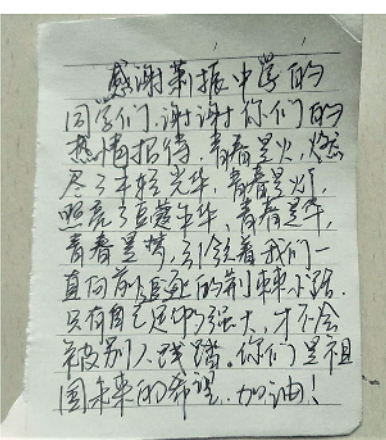 感谢荆振中学的
同学们,谢谢你们的
热情招待,青春是火,燃
尽了年轻光华,青春是灯,
照亮了豆蔻年华,青春是
青春是梦,引领着我们一
直向前 的荆棘小路.
只有自己足够强大,才不会
被别人践踏。你们是祖
国未来的希望.加油!